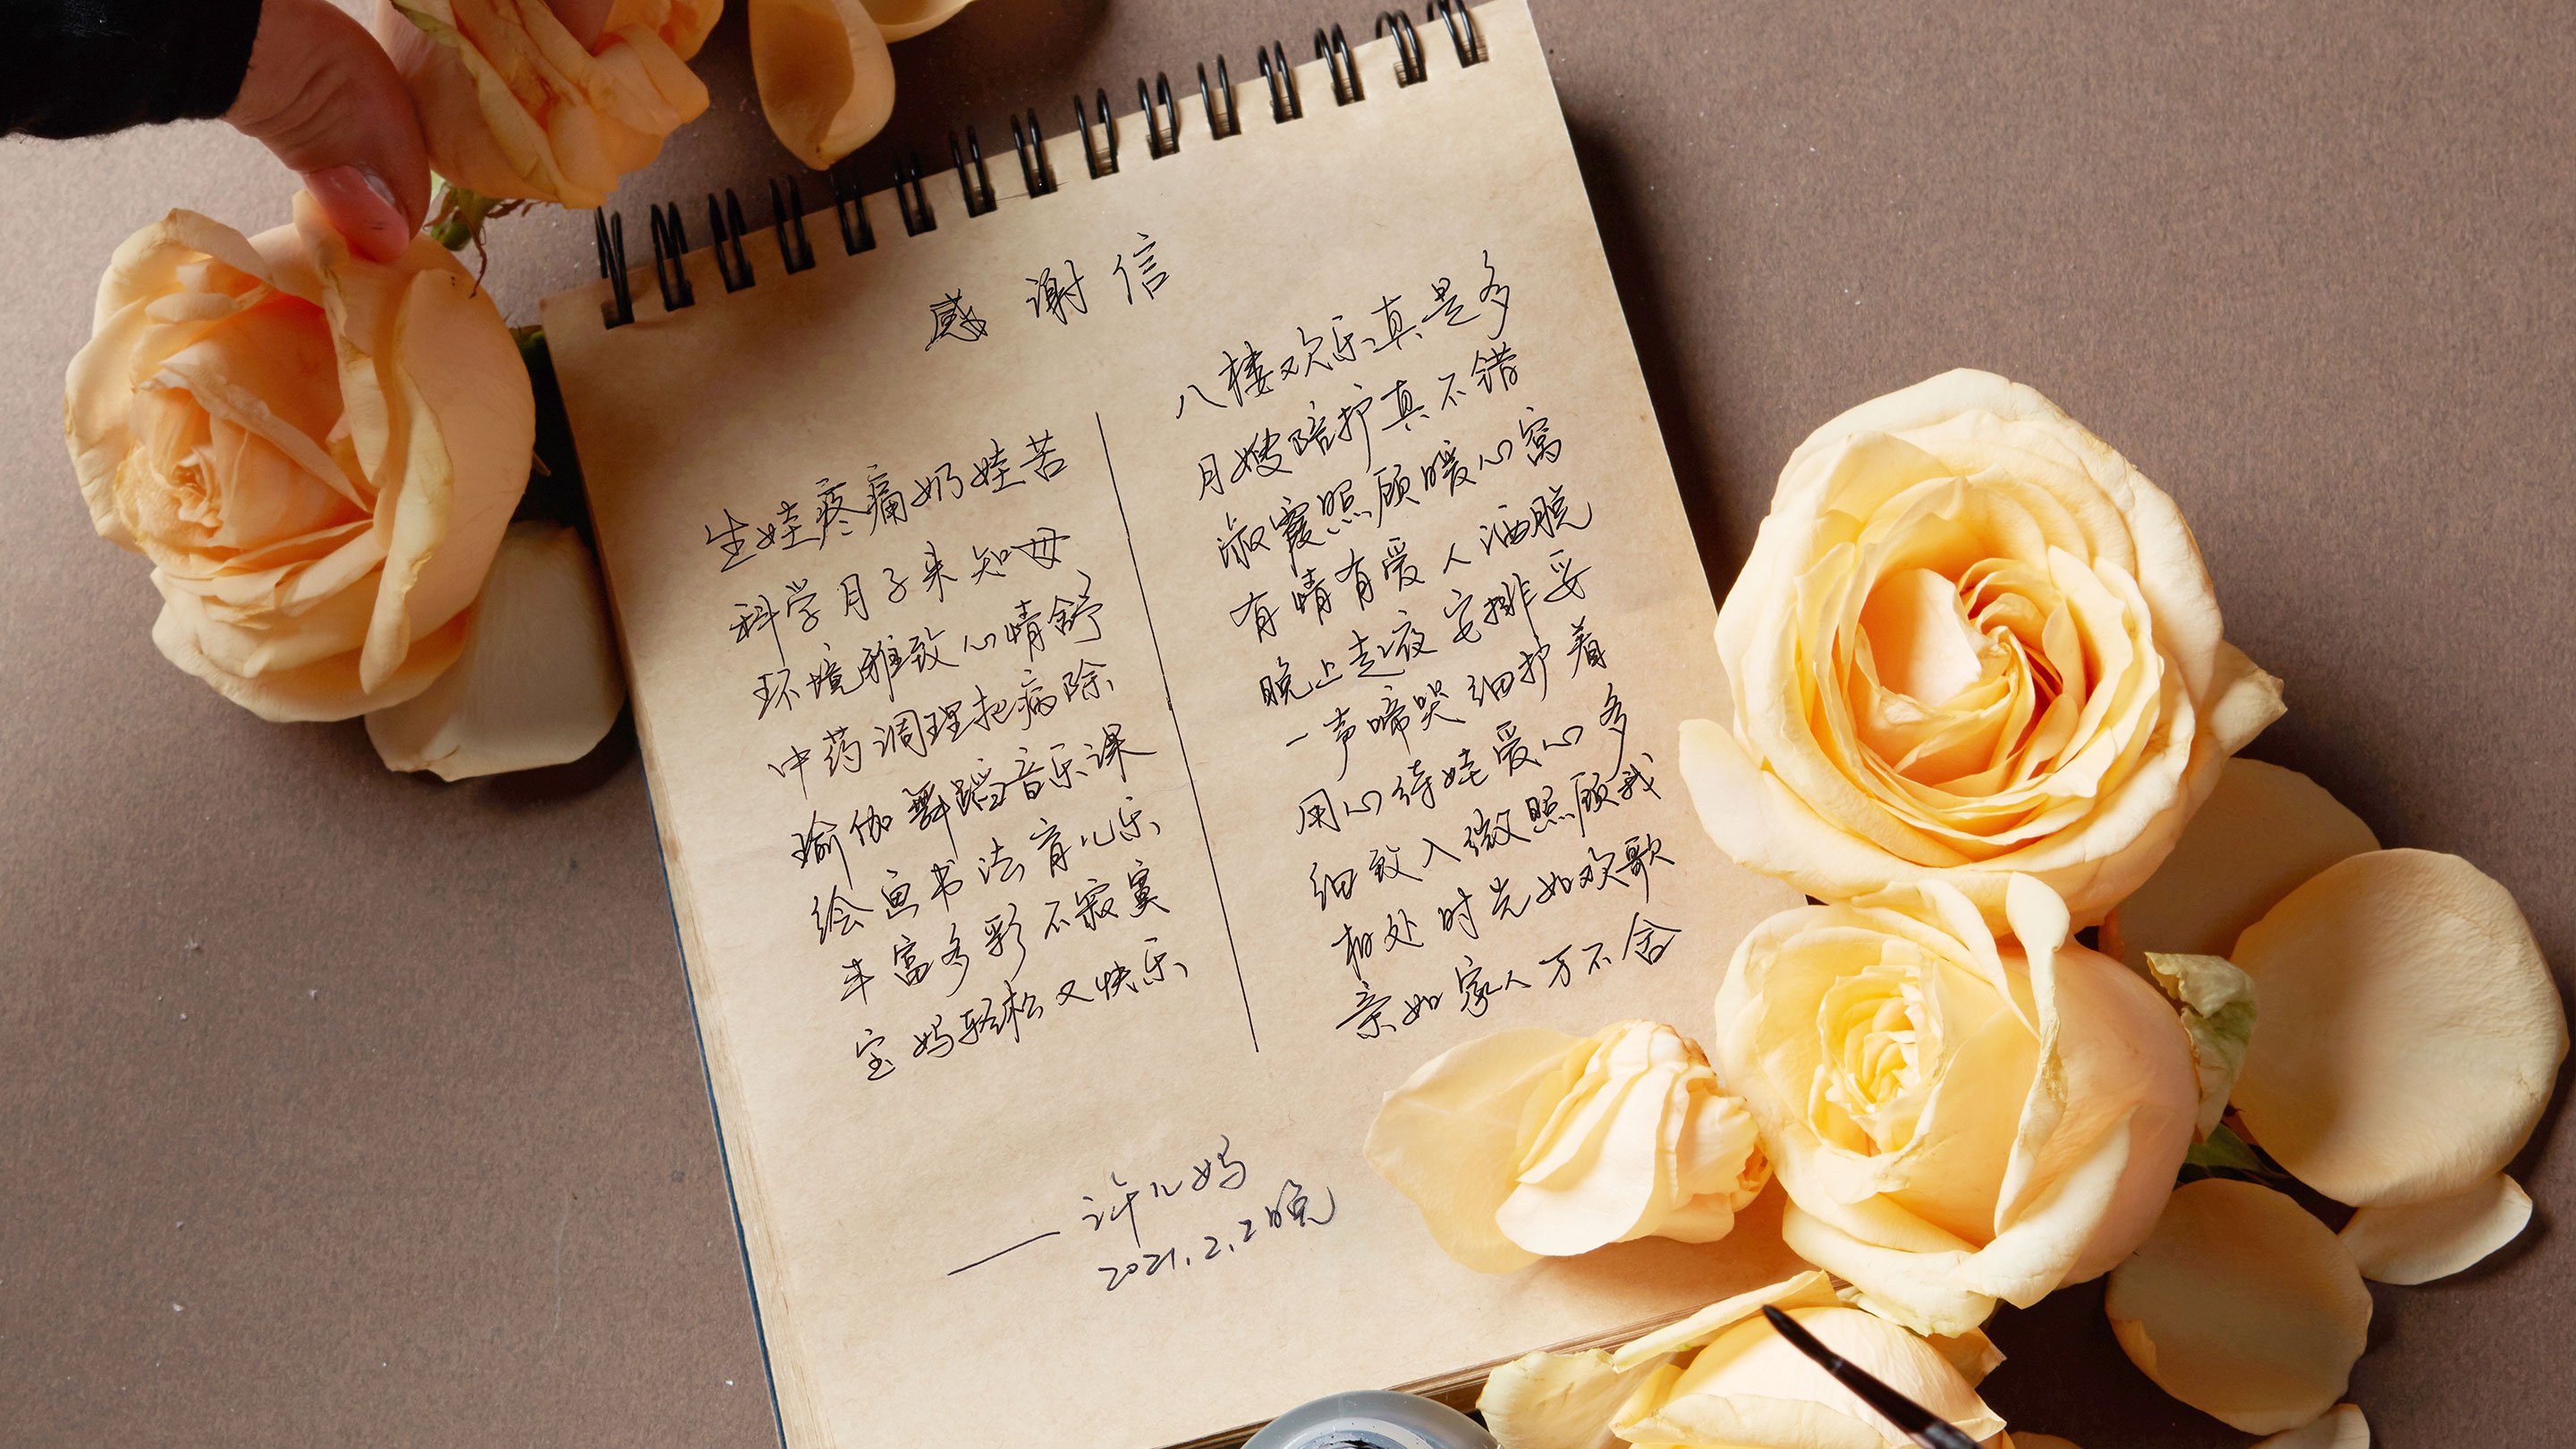 感谢信
生娃疼痛奶娃苦
科学月子来知母
环境雅致心情舒
中药调理把病除
瑜伽舞蹈音乐课
绘画书法育儿乐
丰富多彩不寂寞
宝妈轻松又快乐
八楼欢乐真是多
月嫂陪护真不错
淑霞照顾暖心窝
有情有爱人洒脱
晚上起夜安排妥
一声啼哭细护着
用心待娃爱心多
细致入微照顾我
相处时光如欢歌
亲如家人万不舍
——许儿妈
2021.2.2晚